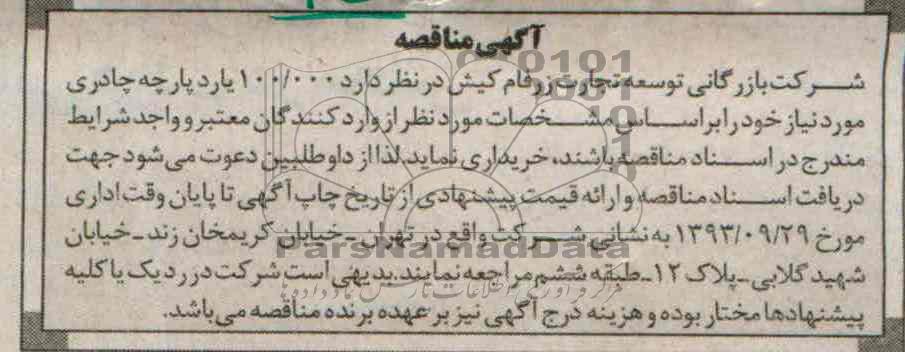 آگهی مناقصه
شرکت بازرگانی توسعه تجارت زرفام کیش در نظر دارد ۱۰۰/۰۰۰ یارد پارچه چادری
مورد نیاز خود را براساس مشخصات مورد نظر از وارد کنندگان معتبر و واجد شرایط
مندرج در اسناد مناقصه باشند، خریداری نماید. لذا از داوطلبین دعوت می شود جهت
دریافت اسناد مناقصه و ارائه قیمت پیشنهادی از تاریخ چاپ آگهی تا پایان وقت اداری
مورخ ۱۳۹۳/۰۹/۲۹ به نشانی شرکت واقع در تهران - خیابان کریمخان زند - خیابان
شهید گلابی - پلاک ۱۲ - طبقه ششم مراجعه نمایند. بدیهی است شرکت در رد یک یا کلیه
پیشنهادها مختار بوده و هزینه درج آگهی نیز بر عهده برنده مناقصه می باشد.
ParsNamadData